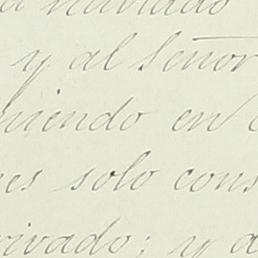 y al Señor
niendo en
es solo cons
rivado; y a